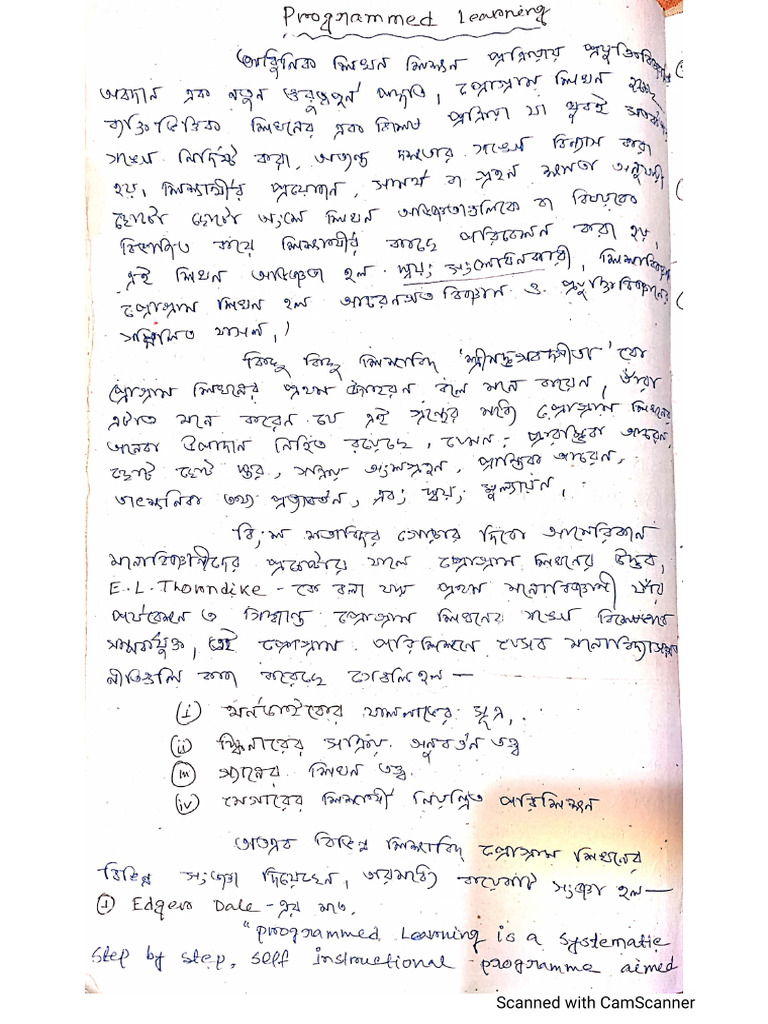 Programmed Learning
আধুনিক শিখন শিক্ষন প্রক্রিয়ায় প্রযুক্তিবিজ্ঞানের
অবদান এক নতুন গুরুত্বপূর্ণ পদ্ধতি, প্রোগ্রাম শিখন হচ্ছে
ব্যক্তিভিত্তিক শিখনের এক বিশেষ প্রক্রিয়া যা খুবই
সঙ্গে নির্দিষ্ট করা, অত্যন্ত দক্ষতার সঙ্গে বিন্যাস করা
হয়, শিক্ষার্থীর প্রয়োজন, সামর্থ বা গ্রহন ক্ষমতা অনুযায়ী
ছোটো ছোটো অংশে শিখন অভিজ্ঞতাগুলিকে বা বিষয়কে
বিভাজিত করে শিক্ষার্থীর কাছে পরিবেশন করা হয়,
এই শিখন অভিজ্ঞতা হল স্বয়ং সংশোধনকারী,
প্রোগ্রাম শিখন হল আচরনগত বিজ্ঞান ও প্রযুক্তিবিজ্ঞানের
সম্মিলিত ফসল,।
কিছু কিছু শিক্ষাবিদ 'শ্রীমদ্ভগবদগীতা' কে
প্রোগ্রাম শিখনের প্রথম উদাহরন বলে মনে করেন, তাঁরা
এটাও মনে করেন যে এই গ্রন্থের মধ্যে প্রোগ্রাম শিখনের
অনেক উপাদান নিহিত রয়েছে, যেমন: প্রারম্ভিক আচরন,
ছোট ছোট স্তর, সক্রিয় অংশগ্রহন, প্রান্তিক আচরন,
তাৎক্ষনিক তথ্য প্রত্যাবর্তন, এবং স্বয়ং মূল্যায়ন,
বিংশ শতাব্দির গোড়ার দিকে আমেরিকান
মনোবিজ্ঞানীদের প্রচেষ্টার ফলে প্রোগ্রাম শিখনের উদ্ভব,
E.L. Thorndike - কে বলা যায় প্রথম মনোবিজ্ঞানী যাঁর
পর্যবেক্ষন ও সিদ্ধান্ত প্রোগ্রাম শিখনের সঙ্গে বিশেষভাবে
সম্পর্কযুক্ত, এই প্রোগ্রাম পরিশিক্ষনে যেসব
নীতিগুলি কাজ করেছে সেগুলি হল —
(i) থর্নডাইকের ফললাভের সূত্র,
(ii) স্কিনারের সক্রিয় অনুবর্তন তত্ত্ব
(iii) গ্যানের শিখন তত্ত্ব
(iv) মেগারের শিক্ষার্থী নিয়ন্ত্রিত পরিশিক্ষন
অতএব বিভিন্ন শিক্ষাবিদ প্রোগ্রাম শিখনের
বিভিন্ন সংজ্ঞা দিয়েছেন, তারমধ্যে কয়েকটি সংজ্ঞা হল —
① Edger Dale - এর মতে,
"Programmed Learning is a systematic
step by step, self instructional programme aimed
Scanned with CamScanner